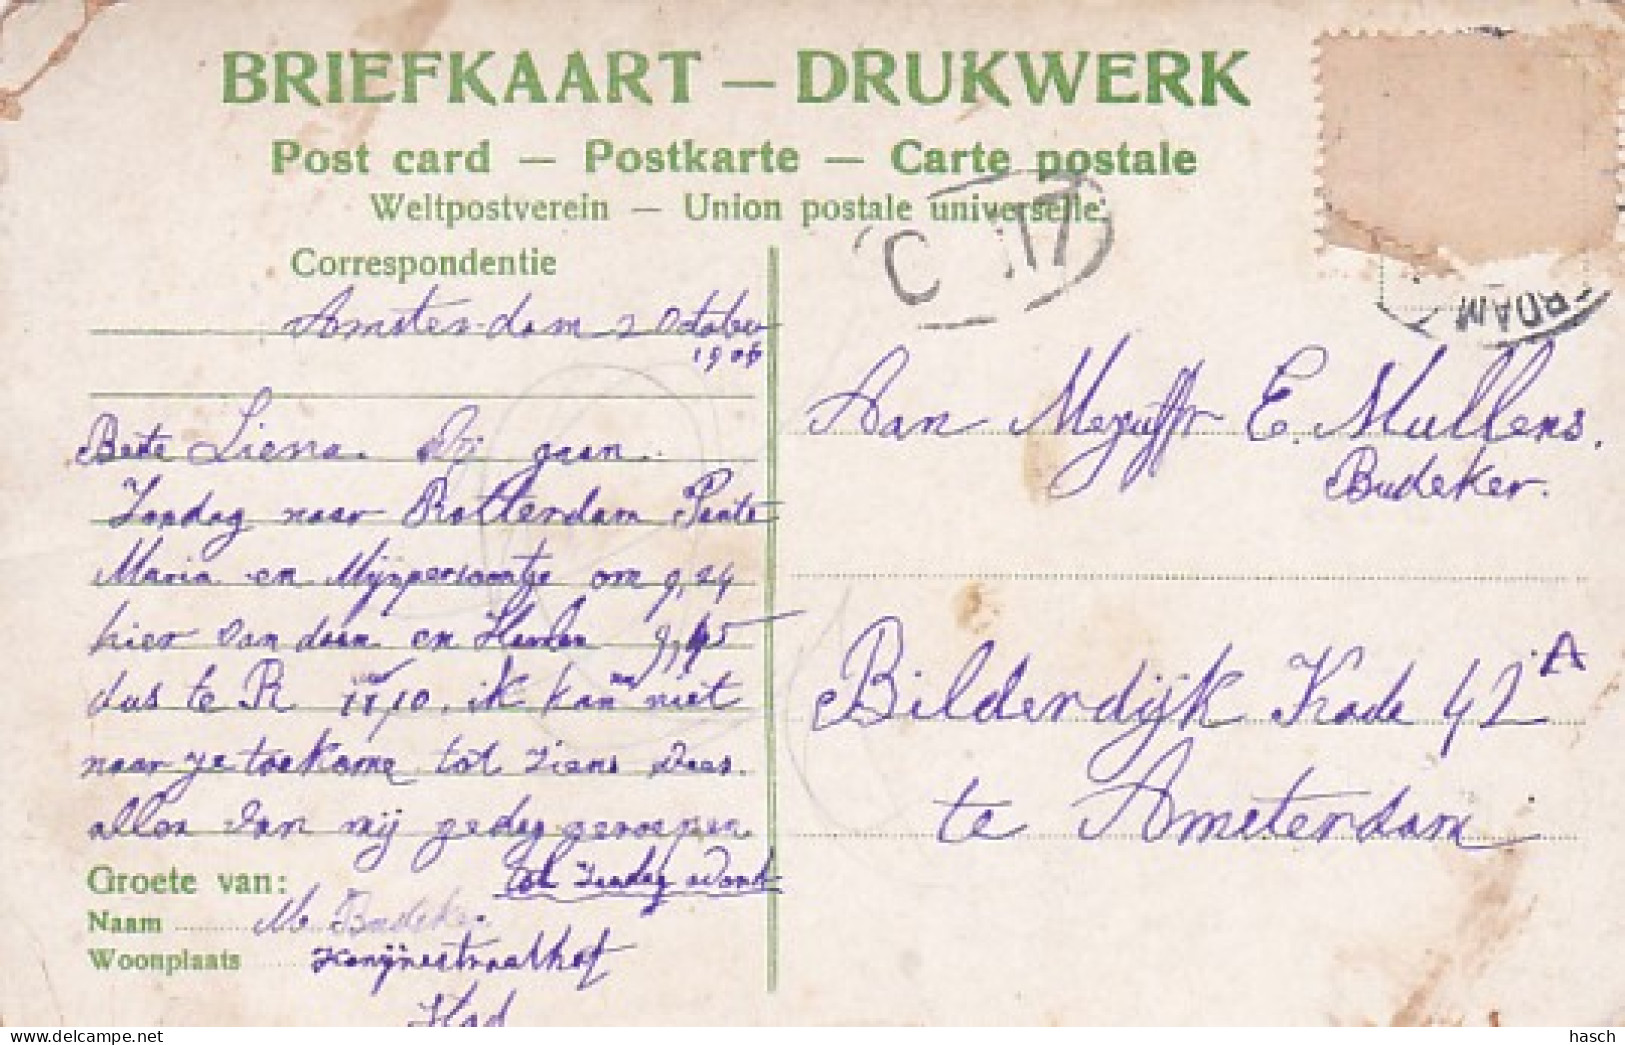 BRIEFKAART — DRUKWERK
Post card — Postkarte — Carte postale
Weltpostverein — Union postale universelle.
Correspondentie
C 117
RDAM
Amsterdam 2 October
1906
Beste Liena. Wij gaan
Zondag naar Rotterdam Tante
Maria en om 9,24
hier van daan en 9,45
dus te R 11,10. ik kan niet
naar je toekome tot ziens Dees.
alles van mij gedag geroepen
tot Zondag avond
Groete van:
Naam M. Budeker
Woonplaats Konijnestraathof
Aan Mejuffr E. Mullens.
Budeker.
Bilderdijk Kade 42 A
te Amsterdam
hasch